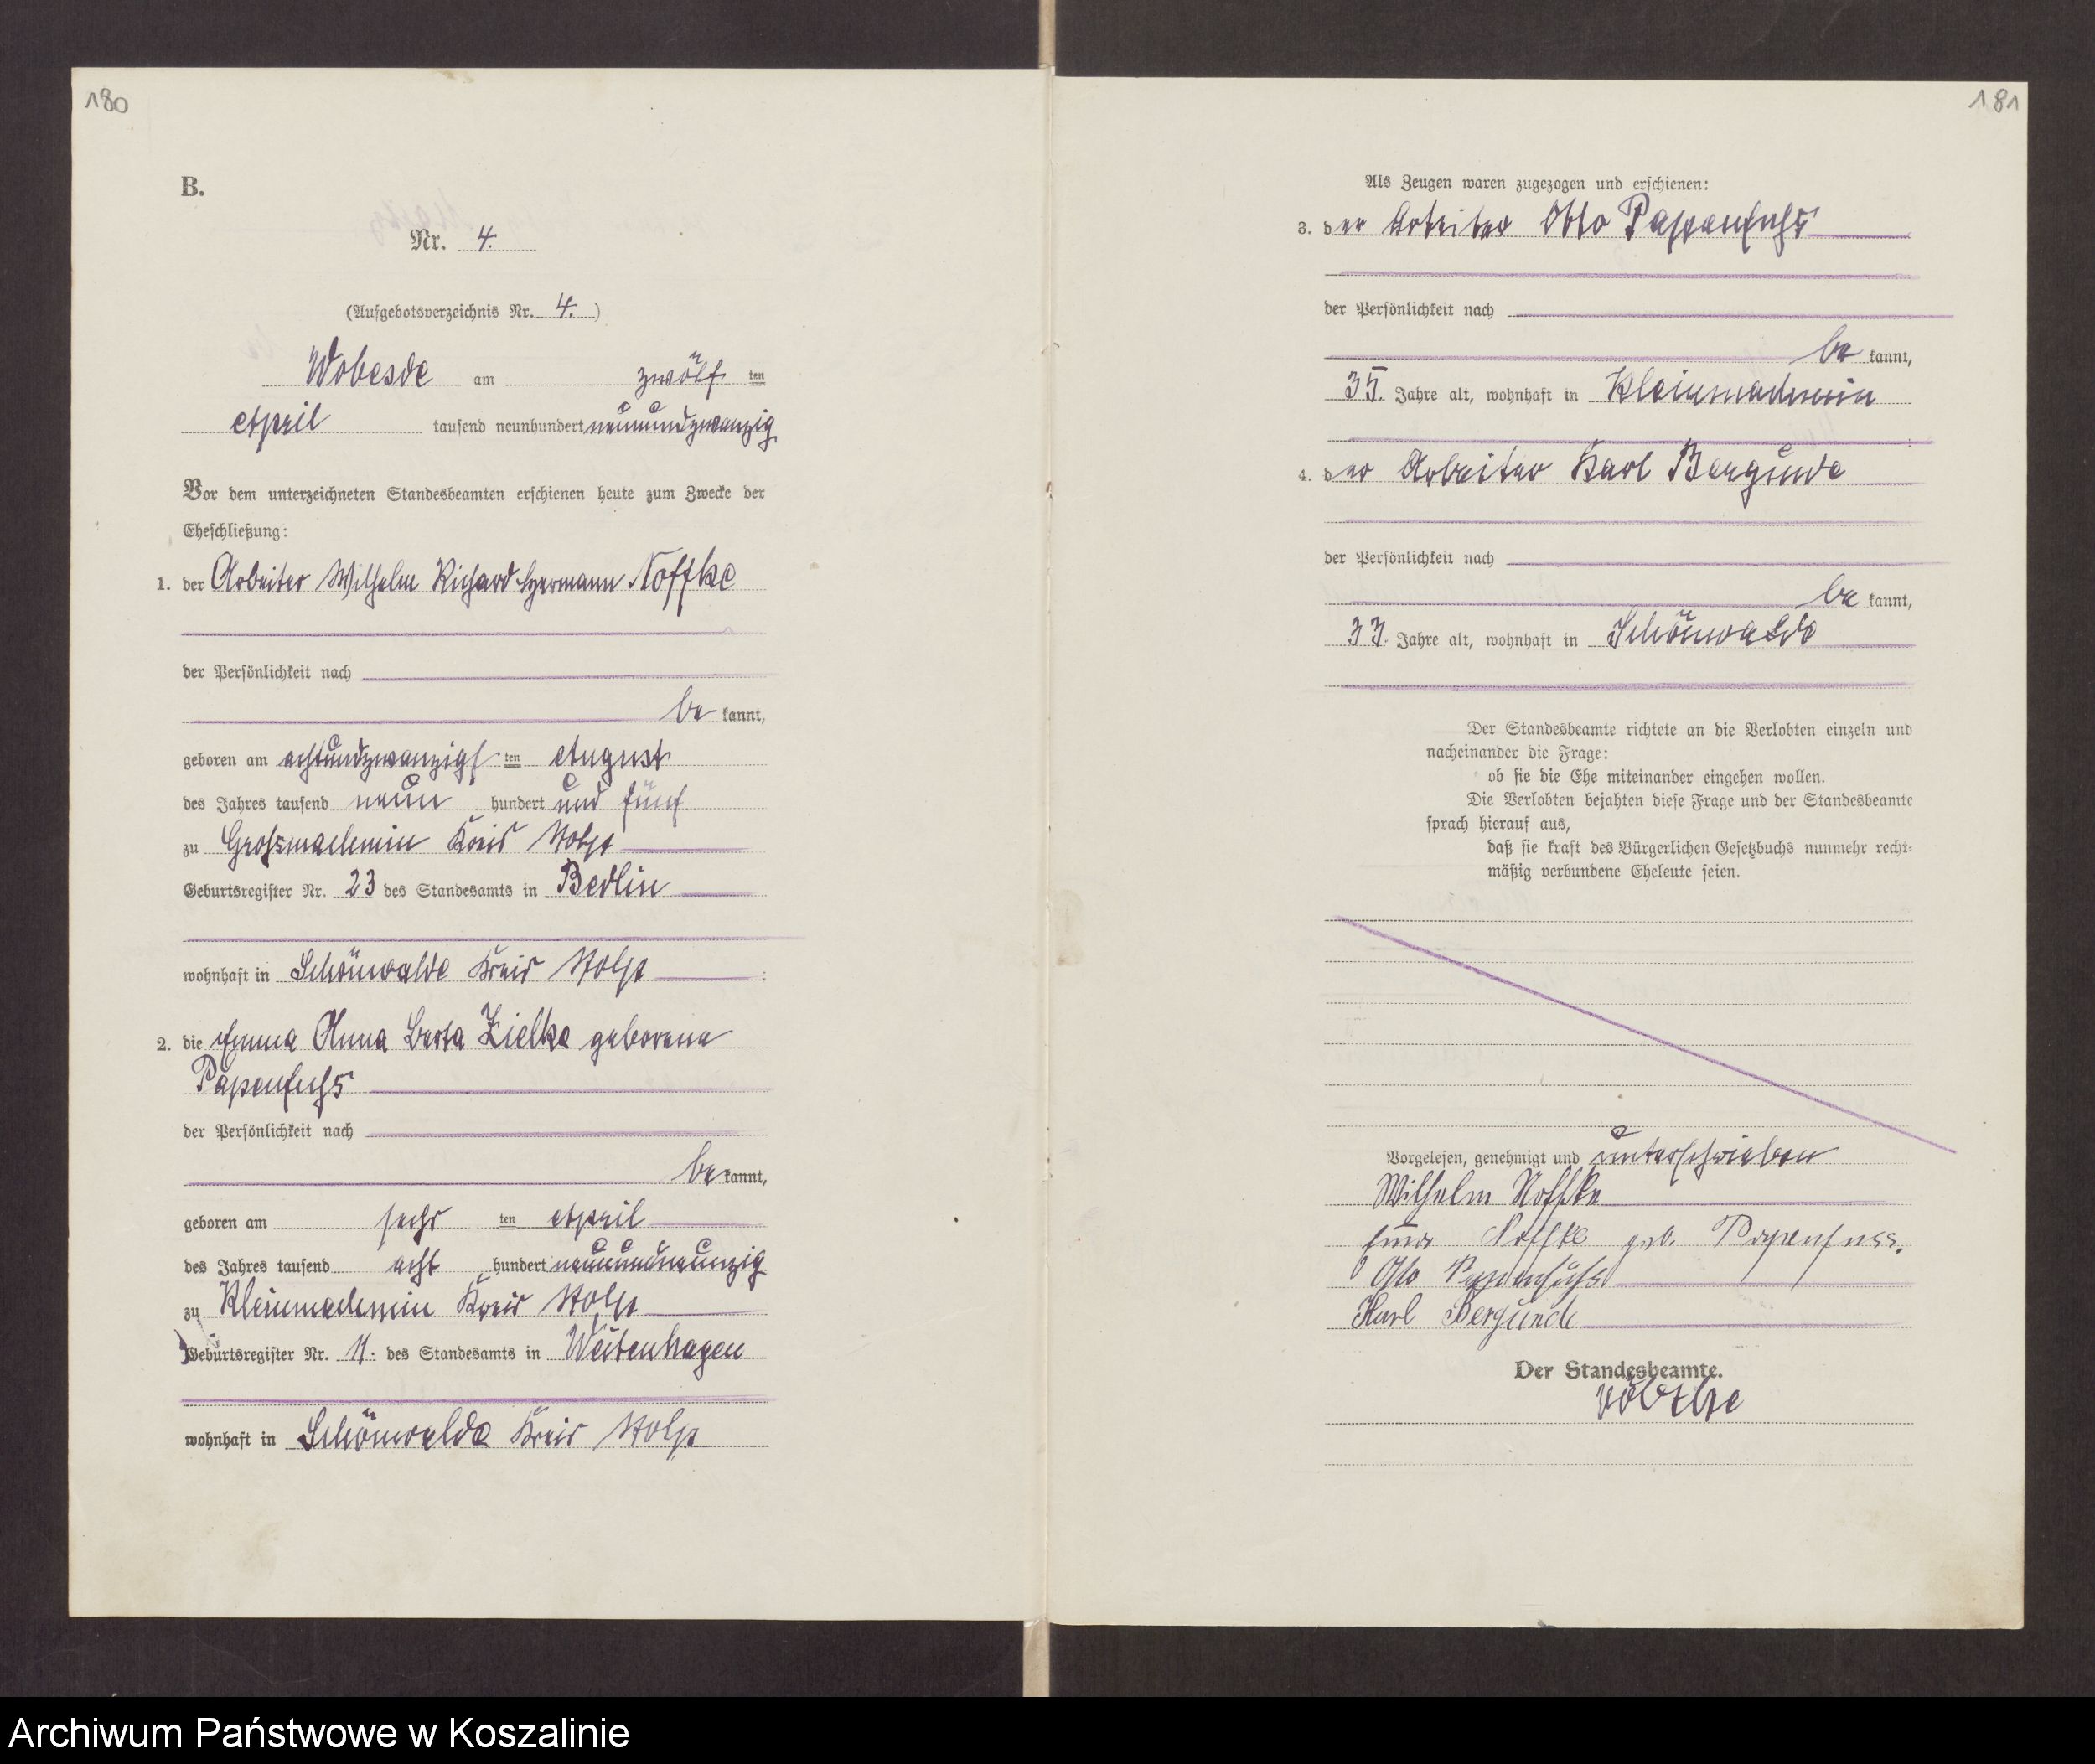 180
B.
Nr. 4.
(Aufgebotsverzeichnis Nr. 4.)
Wobesde am zwölf ten
April tausend neunhundert neunundzwanzig
Vor dem unterzeichneten Standesbeamten erschienen heute zum Zwecke der
Eheschließung:
1. der Arbeiter Wilhelm Richard Hermann Noffke
der Persönlichkeit nach
be kannt,
geboren am achtundzwanzigs ten August
des Jahres tausend neun hundert und fünf
zu Grossmachmin Kreis Stolp
Geburtsregister Nr. 23 des Standesamts in Bedlin
wohnhaft in Schönwalde Kreis Stolp :
2. die Emma Anna Berta Zielke geborene
Papenfuhs
der Persönlichkeit nach
be kannt,
geboren am sechs ten April
des Jahres tausend acht hundert neunundneunzig
zu Kleinmachmin Kreis Stolp
Geburtsregister Nr. 11. des Standesamts in Weitenhagen
wohnhaft in Schönwalde Kreis Stolp
181
Als Zeugen waren zugezogen und erschienen:
3. der Arbeiter Otto Papenfuhs
der Persönlichkeit nach
be kannt,
35. Jahre alt, wohnhaft in Kleinmachmin
;
4. der Arbeiter Karl Bergunde
der Persönlichkeit nach
be kannt,
33. Jahre alt, wohnhaft in Schönwalde
Der Standesbeamte richtete an die Verlobten einzeln und
nacheinander die Frage:
ob sie die Ehe miteinander eingehen wollen.
Die Verlobten bejahten diese Frage und der Standesbeamte
sprach hierauf aus,
daß sie kraft des Bürgerlichen Gesetzbuchs nunmehr recht-
mäßig verbundene Eheleute seien.
Vorgelesen, genehmigt und unterschrieben
Wilhelm Noffke
Emma Noffke geb. Papenfuss.
Otto Papenfuhs
Karl Bergunde
Der Standesbeamte.
Archiwum Państwowe w Koszalinie